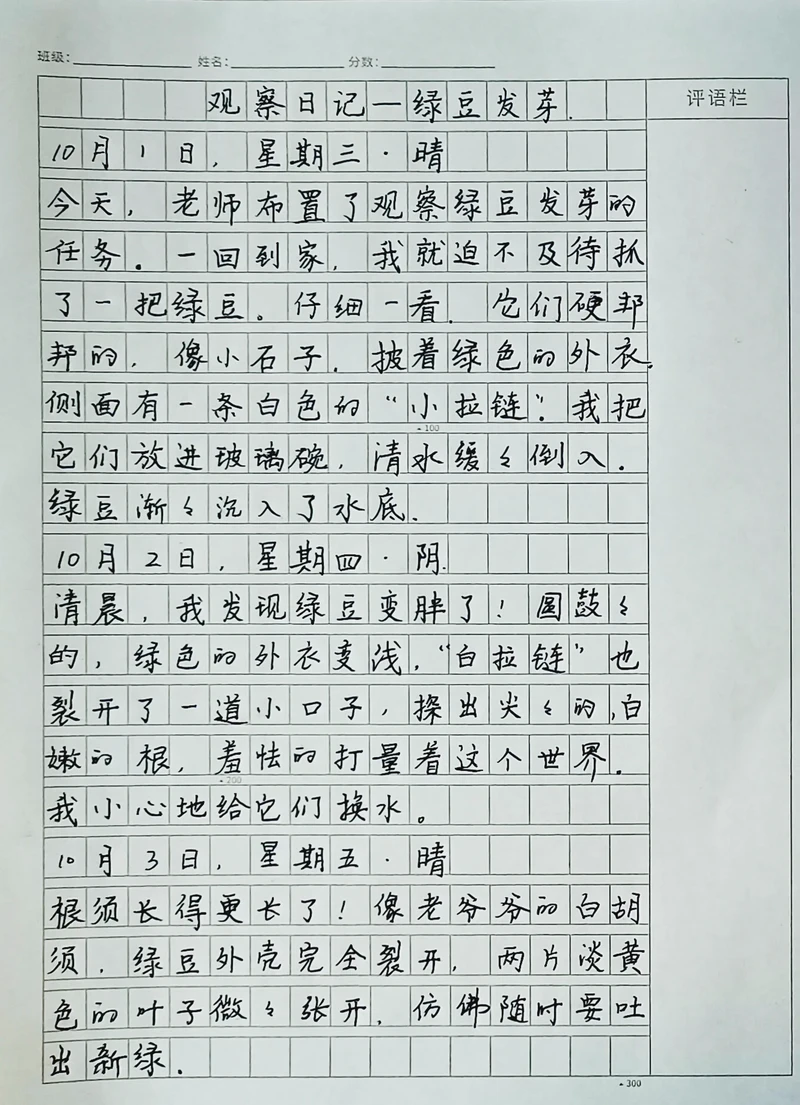 班级： 姓名： 分数：
观察日记—绿豆发芽. 评语栏
10月1日，星期三·晴
今天，老师布置了观察绿豆发芽的
任务.一回到家，我就迫不及待抓
了一把绿豆。仔细一看.它们硬邦
邦的，像小石子.披着绿色的外衣.
侧面有一条白色的“小拉链”.我把
它们放进玻璃碗，清水缓々倒入.
绿豆渐々沉入了水底.
10月2日，星期四·阴.
清晨，我发现绿豆变胖了！圆鼓々
的，绿色的外衣变浅，“白拉链”也
裂开了一道小口子，探出尖々的，白
嫩的根，羞怯的打量着这个世界.
我小心地给它们换水。
10月3日，星期五·晴
根须长得更长了！像老爷爷的白胡
须，绿豆外壳完全裂开，两片淡黄
色的叶子微々张开，仿佛随时要吐
出新绿.
100
200
300